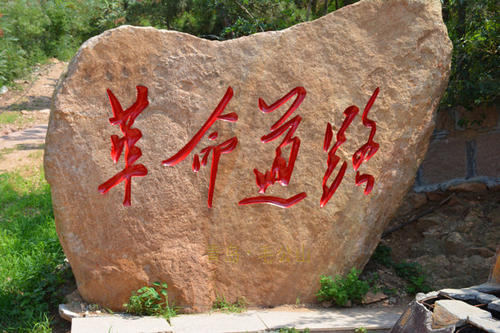 革命道路